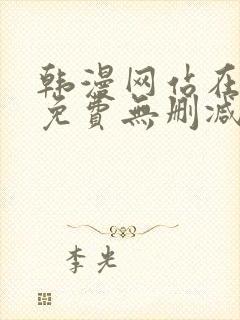 韩漫网站在
免費無删减
李光